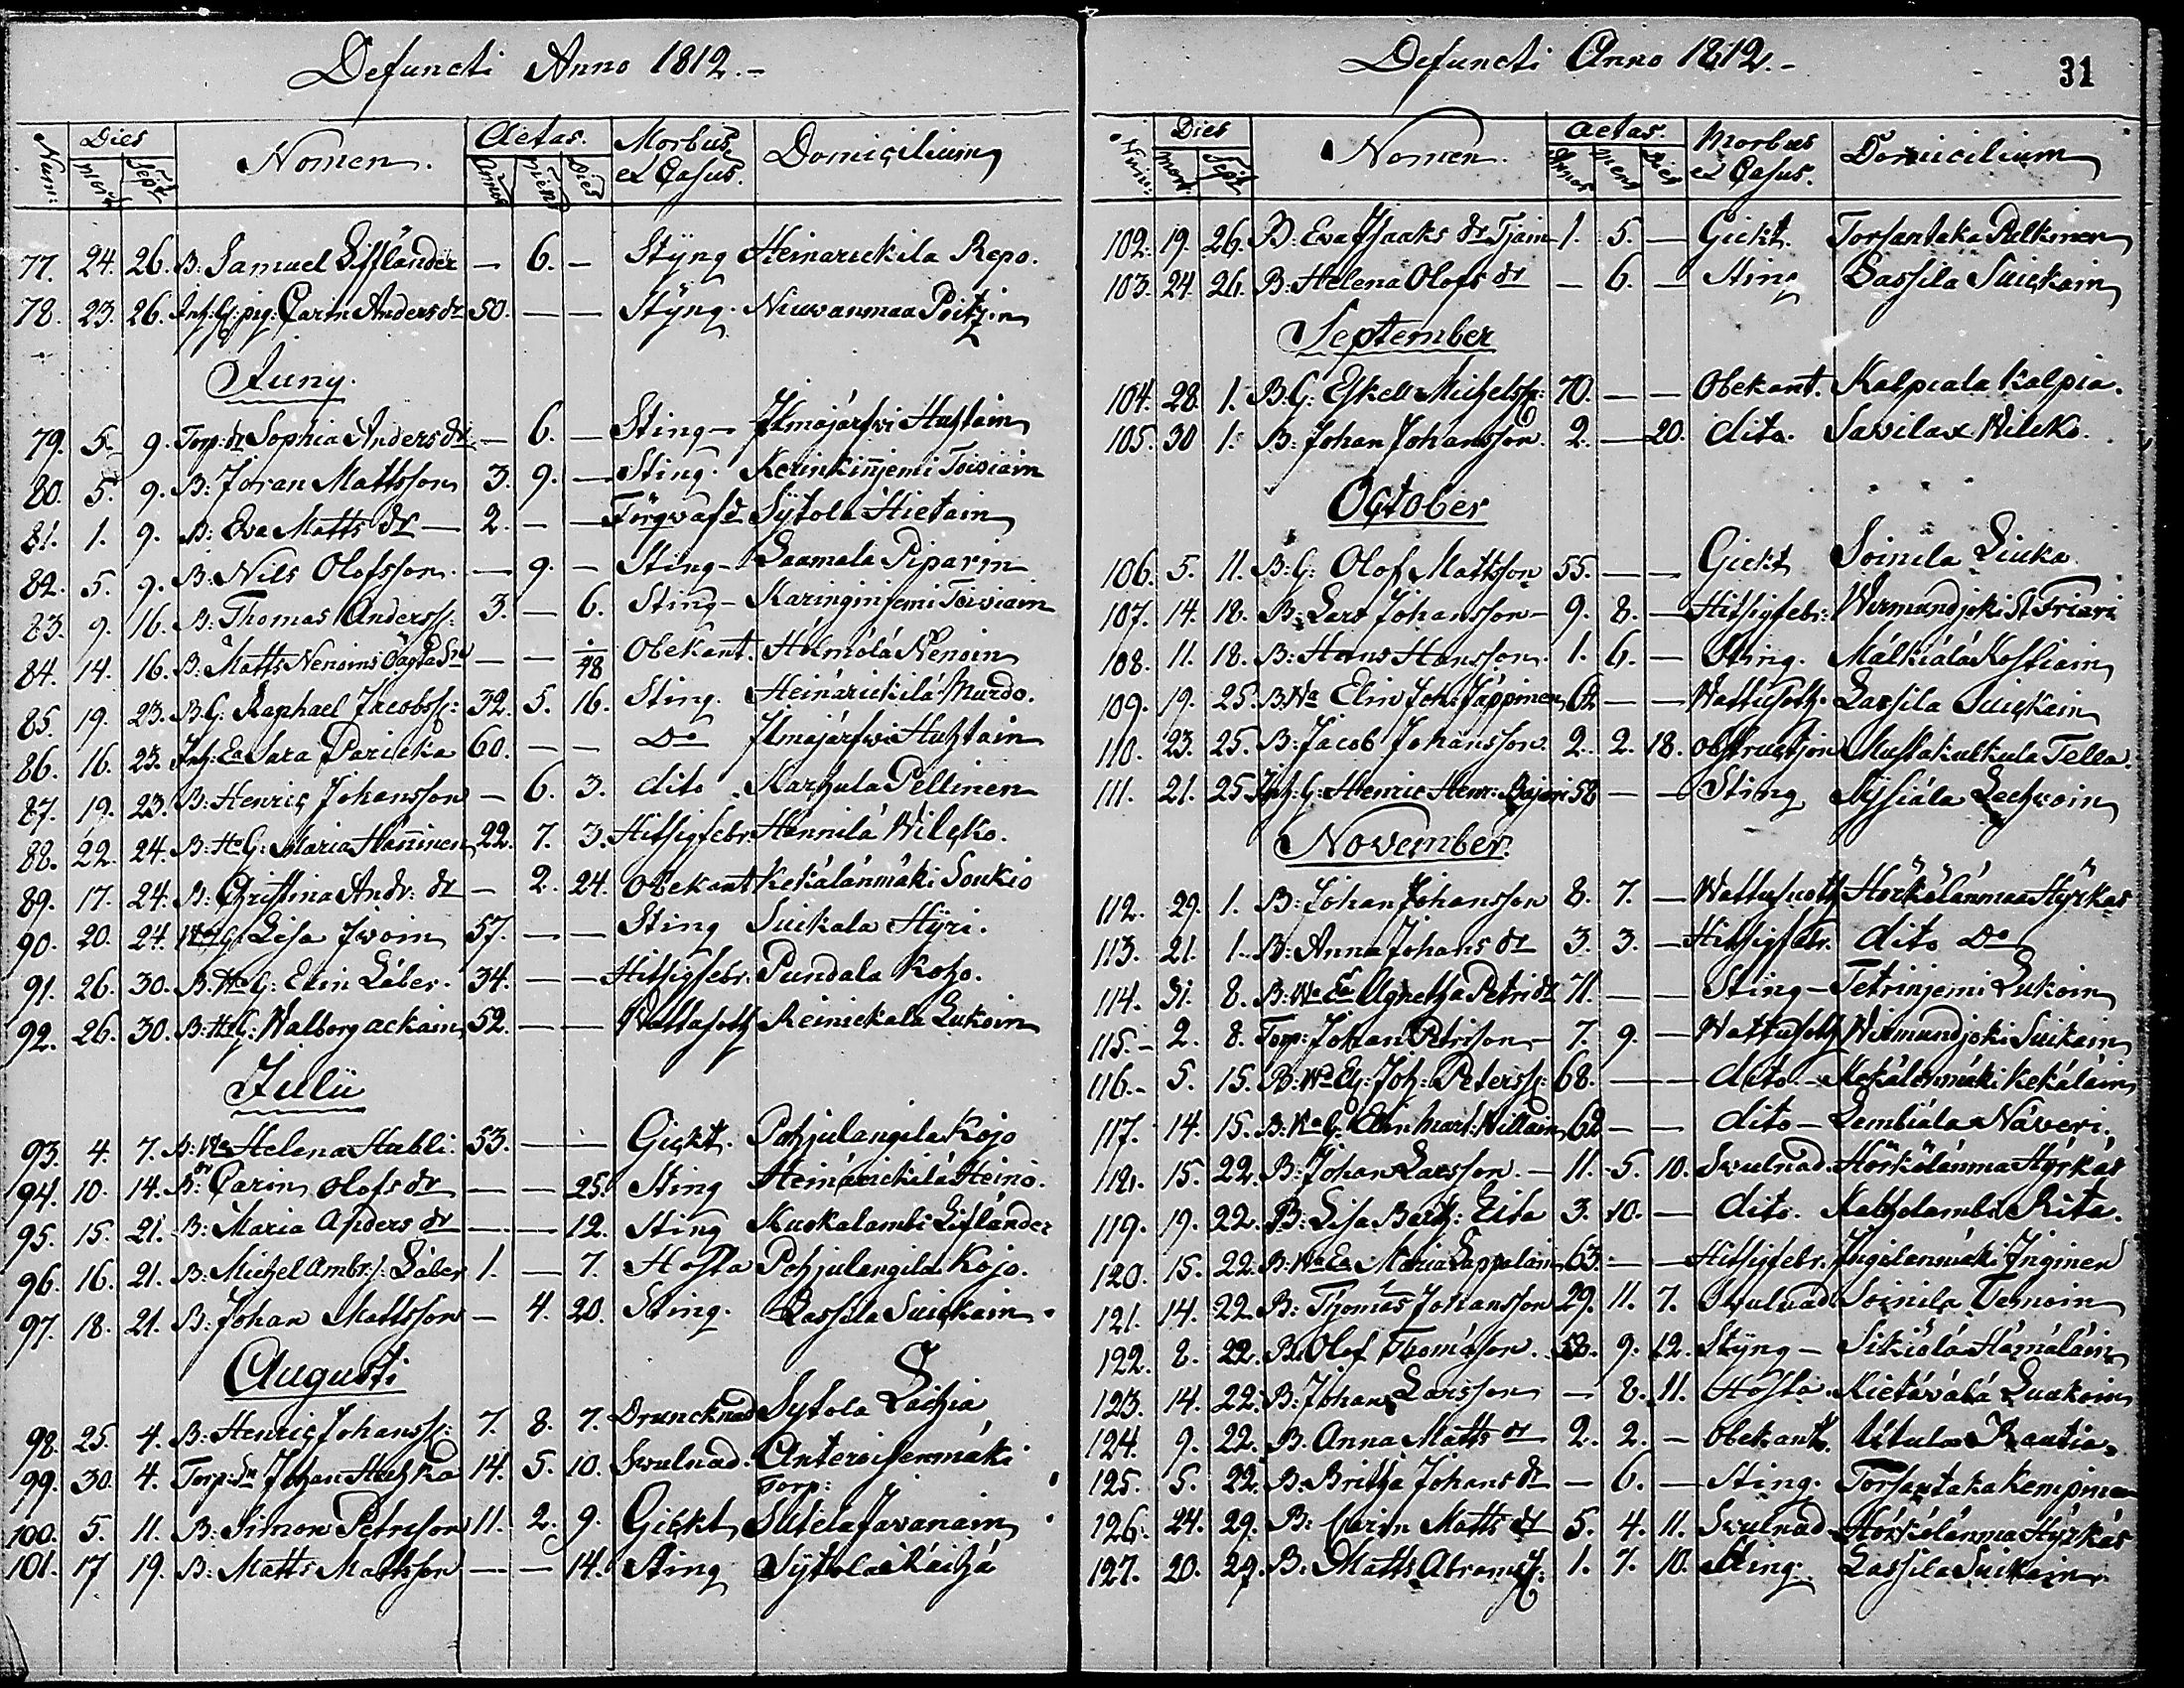 Defuncti Anno 1812.-
Num: Dies Mort: Sept: Nomen. Aetas. Annos Mens Dies Morbus et Casus. Domicilium
77. 24. 26. B: Samuel Lifflander — 6. — Styng Heinarickila Repo.
78. 23. 26. Inh: G: pig: Carin Anders dr 50. — — Styng. Niuwanmaa Poitzin
Juny.
79. 5. 9. Torp: dr Sophia Anders dr — 6. — Sting — Ilmajärfwi Huhtain
80. 5. 9. B: Jöran Mattsson 3. 9. — Sting. Kerinkinjemi Toiviain
81. 1. 9. B: Eva Matts dr — 2. — — Sytola Hietain
82. 5. 9. B: Nils Olofsson. — 9. — Sting — Laamala Piparin
83. 9. 16. B: Thomas Anderss: 3. — 6. Sting — Karinginjemi Toiviain
84. 14. 16. B: Matts Nenoins — — 1/48 Obekant. Hölmölä Nenoin
85. 19. 23. B G: Raphael Jacobss: 32. 5. 16. Sting. Heinärickilä Murdo.
86. 16. 23. Inh: Ea Sara Paricka 60. — — Do Ilmajärfwi Huhtain
87. 19. 23. B: Henric Johansson — 6. 3. dito Karhula Pellinen
88. 22. 24. B: Ha G: Maria Hänninen 22. 7. 3. Hitsigfebr. Hännilä Wilcko.
89. 17. 24. B: Christina Andr: dr — 2. 24. Obekant Kekälänmäki Soukio
90. 20. 24. Lisa Iwoin 57. — — Sting Suikala Hyri.
91. 26. 30. B. Ha G: Elin Läber. 34. — — Hitsigfebr. Pundala Koho.
92. 26. 30. B: Ha G: Walborg Ackain 52. — — Wattusoth Reinickala Lukoin
Julii
93. 4. 7. B: Wa Helena Stabli. 53. — — Gickt. Pohjulangila Kojo
94. 10. 14. B: Carin Olofs dr — — 25. Sting Heinärickilä Heino.
95. 15. 21. B: Maria Anders dr — — 12. Sting Kuokalambi Lifländer
96. 16. 21. B: Michel Ambr: s. Läber 1. — 7. Hosta Pohjulangila Kojo.
97. 18. 21. B: Johan Mattsson — 4. 20. Sting. Lassila Suickain
Augusti
98. 25. 4. B: Henric Johanss: 7. 8. 7. Druncknad Sytola Lachia
99. 30. 4. Torp: Sn Johan 14. 5. 10. Swulnad. Anteroisenmäki Torp:
100. 5. 11. B: Simon Petrisson 11. 2. 9. Gickt Sutela Javanain
101. 17 19. B: Matts Mattsson — — 14. Sting Sytola
Defuncti Anno 1812.-
31
Num: Dies Mort: Sept: Nomen. Aetas. Annos Mens Dies Morbus et Casus. Domicilium
102. 19. 26. B: Eva Isaaks dr Tjäin 1. 5. — Gickt. Torsantaka Pulkinen
103. 24. 26. B: Helena Olofs dr — 6. — Sting Lassila Suickain
September
104. 28. 1. B. G: Eskell Michelss: 70. — — Obekant. Kalpiala Kalpia.
105. 30 1. B: Johan Johansson. 2. — 20. dito. Sawilax Wilcko.
October
106. 5. 11. B. G: Olof Mattsson 55. — — Gickt Soinila Liuka
107. 14. 18. B: Lars Johansson — 9. 8. — Hitsigfebr: Wirmundjoki Friari
108. 11. 18. B: Hans Hansson. 1. 6. — Sting. Mälkiälä Kostiain
109. 19. 25. B. Wa Elin Joh: Jäppinen 62 — — Wattusoth. Lassila Suickain
110. 23. 25. B: Jacob Johansson 2. 2. 18. Obstructjon Mustakulkula Tella.
111. 21. 25. Inh: G: Henric Henr: Bajari 58 — — Sting Lechwoin
November.
112. 29. 1. B: Johan Johansson 8. 7. — Wattusoth Hörkölänmaa Hyrkäs
113. 21. 1. B: Anna Johans dr 3. 3. — Hitsigfebr. dito Do
114. 31. 8. B: Wa Ea Agnetha Petri dr 71. — — Sting — Tetrinjemi Lukoin
115. — 2. 8. Torp: Johan Petrisson — 7. 9. — Wattusoth Wirmundjoki Suikain
116. — 5. 15. B: Wa Eg: Joh: Peterss: 68. — — dito — Kekälänmäki Kekäläin
117. 14. 15. B: Wa G: Elin Mart: Willain 62 — — dito — Lembiälä Näveri.
118. 15. 22. B: Johan Larsson. — 11. 5. 10. Swulnad. Hörkölänmaa Hyrkäs
119. 19. 22. B: Lisa Barth: Rita 3. 10. — dito. Kaltholambi Rita.
120. 15. 22. B: Wa Ea Maria Lappalain 63. — — Hitsigfebr. Ingilänmäki Inginen
121. 14. 22. B: Thomas Johansson 29. 11. 7. Swulnad Soinila Ternoin
122. 2. 22. B. Olof Thomasson. 58. 9. 12. Styng — Sikiälä Hämäläin
123. 14. 22. B: Johan Larsson — 8. 11. Hosta. Kietävälä Luukoin
124. 9. 22. B. Anna Matts dr 2. 2. — Obekant. Utula Rautia
125. 5. 22. B. Britha Johans dr — 6. — Sting. Torsantaka Kempinen
126. 24. 29. B: Carin Matts dr 5. 4. 11. Swulnad Hörkölänmaa Hyrkäs
127. 20. 29. B: Matts Abramss: 1. 7. 10. Sting. Lassila Suikain